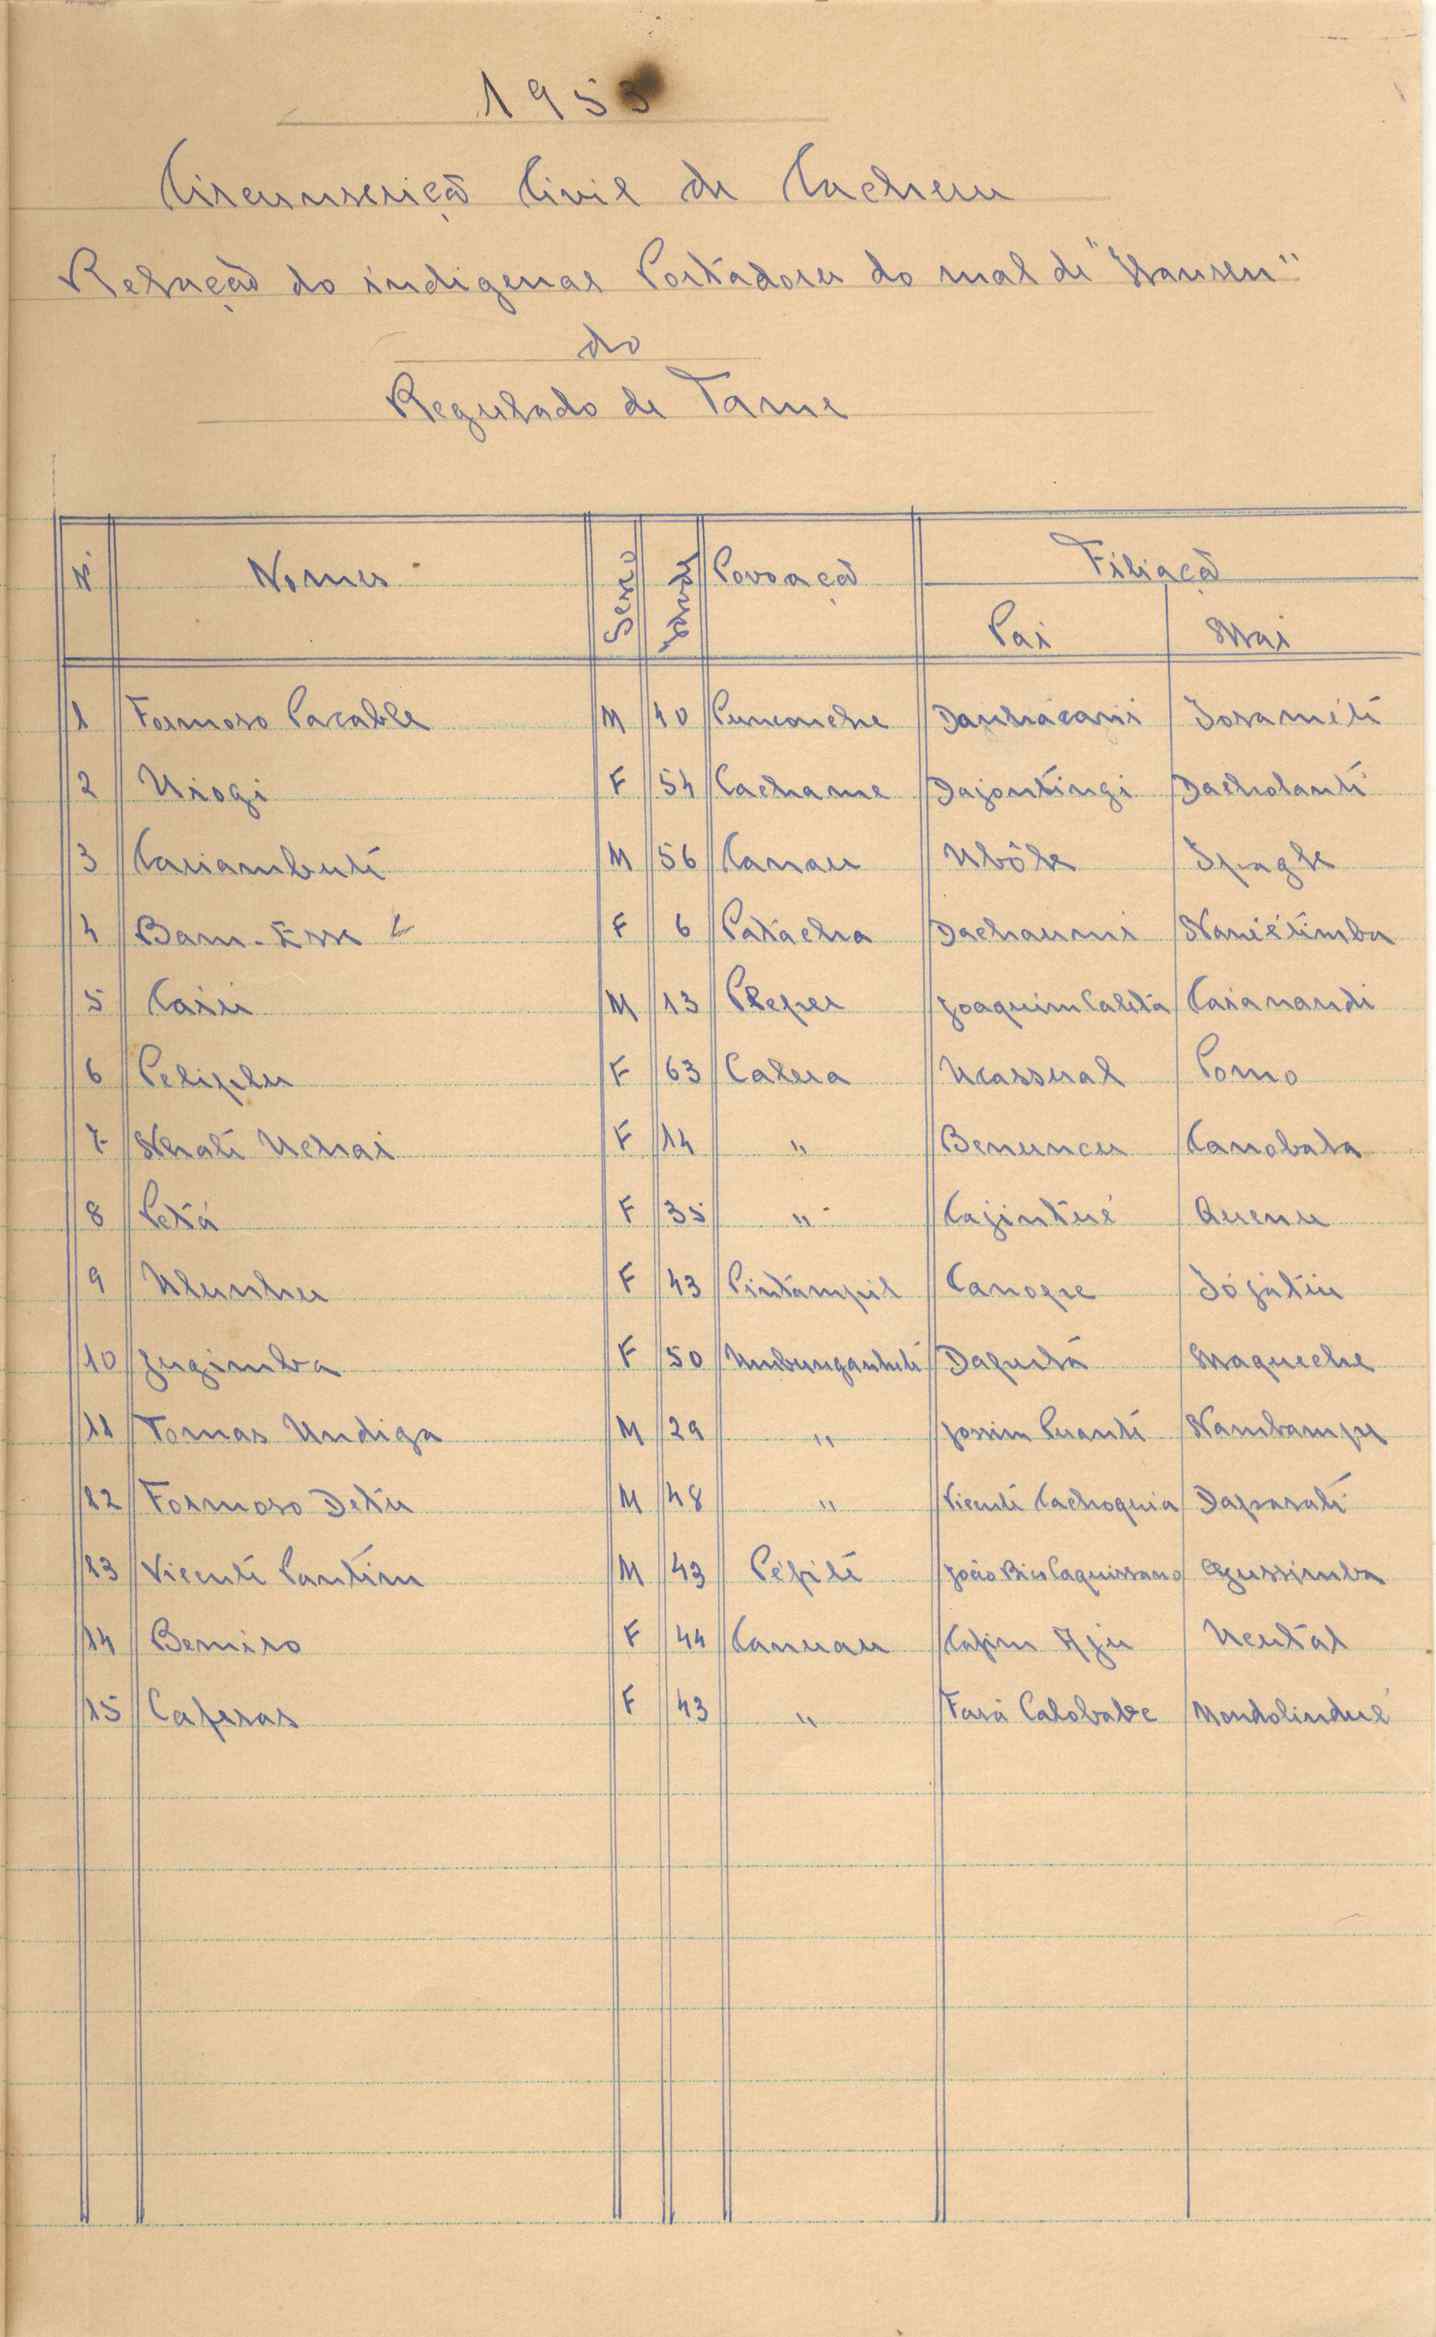 1953
Circunscriçã Civil de Cacheu
Relação do indigenas Portadores do mal de "Hansen"
do
Regulado de Tame
Nº Nomes Sexo Povoaçã Filiaçã
Pai Mai
1 Formoso Pacable M 40 Punconche Danhácani Josamiti
2 Urogi F 54 Cachame Dajontingi Dacholanti
3 Cariambuti M 56 Canau Ubôle Ipagle
4 Bam-Esse F 6 Patácha Dachaumi Naniétimba
5 Caiu M 13 Pleper Joaquim Caleta Caianandi
6 Peliplu F 63 Calera Ucassual Pomo
7 Nhati Uchai F 14 " Benuncu Canobala
8 Petá F 35 " Cajintué Quenu
9 Ulunhu F 43 Pintampil Canope Jójátiu
10 Jugimba F 50 Daputá Maqueche
11 Tomas Undiga M 29 " Jossim Puanti Nambampu
12 Formoso Detiu M 48 " Vicenti Cachoquia Daparati
13 Vicenti Pantim M 43 Péfiti João Bico Caquissano
14 Bemiro F 44 Canuau Cafim Aju Ucutal
15 Caferas F 43 " Fará Calobabe Mondolindué